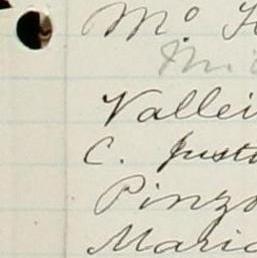 Mᵒ
Vallei
C. Just
Pinzo
Maria